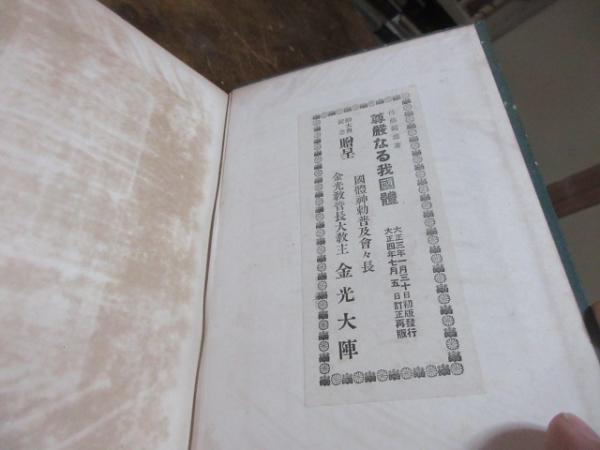 佐藤範雄著
尊嚴なる我國體
大正三年一月三十日初版發行
大正四年七月五日訂正再版
御大典
記念
贈呈
國體神勅普及會々長
金光教管長大教主 金光大陣